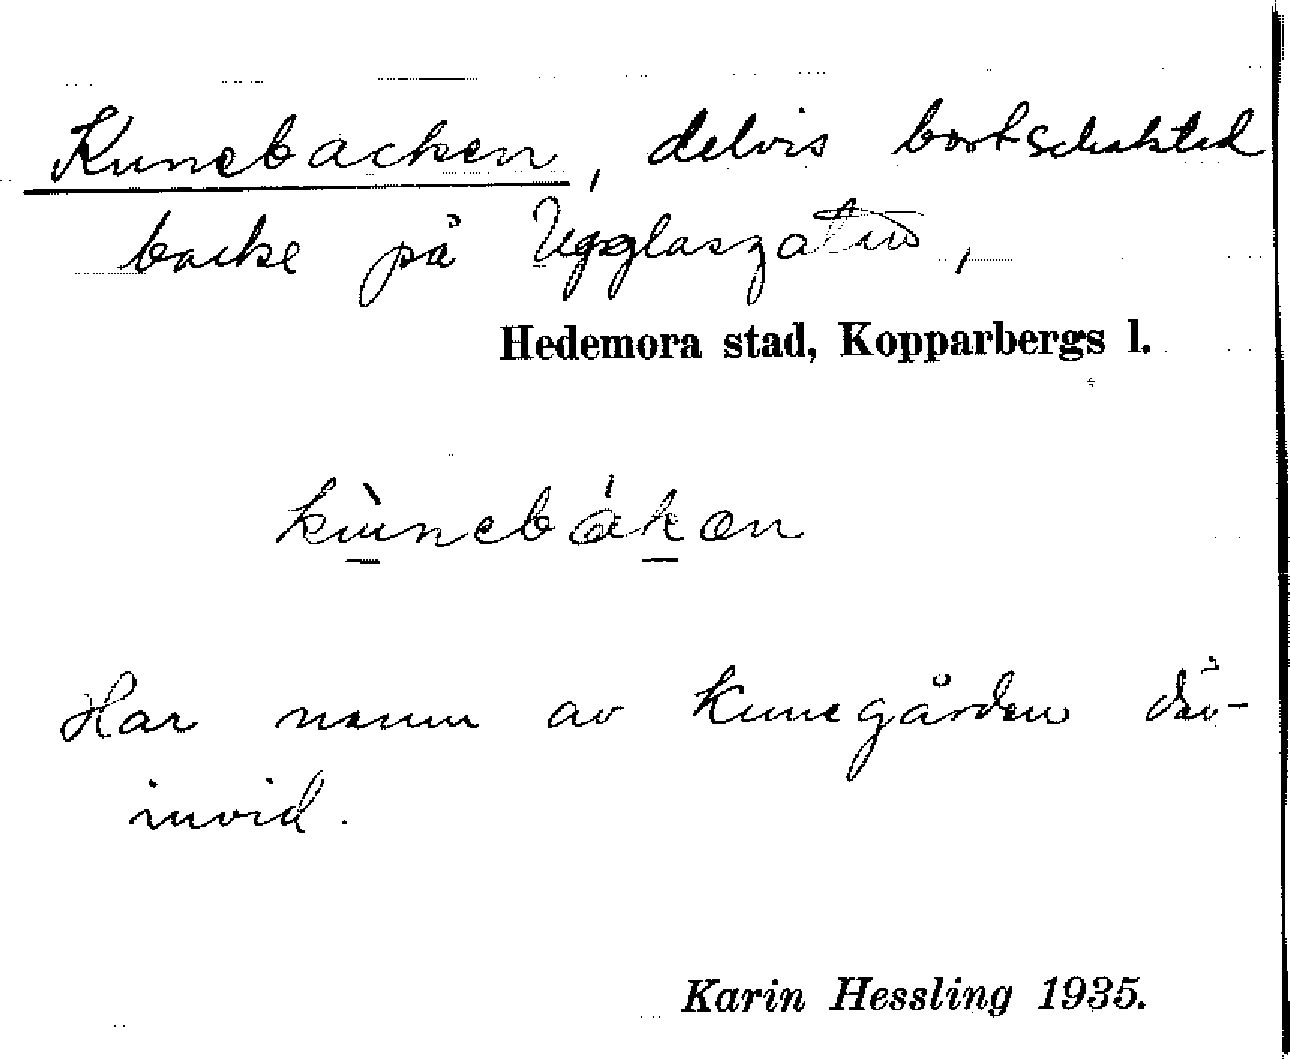 Kunebacken, delvis bortschaktad
backe på Ugglasgatan,
Hedemora stad, Kopparbergs l.
kùnebákən
Har namn av Kunegården där-
invid.
Karin Hessling 1935.